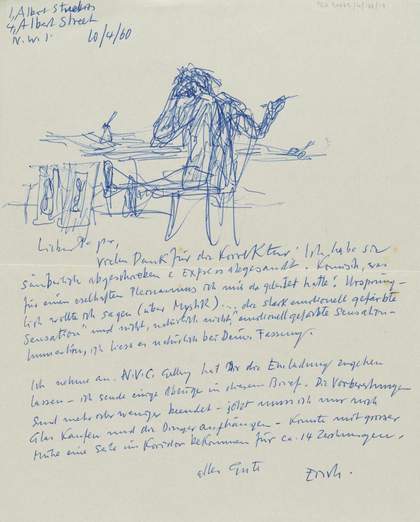 1, Albert Studios
4, Albert Street
N.W.1. 10/4/60
Lieber
vielen Dank für die Korrektur! Ich habe sie
säuberlich abgeschrieben & Express abgesandt. Komisch, was
für einen ekelhaften Pleonasmus ich mir da geleistet hatte! Ursprüng-
lich wollte ich sagen (über Mystik) ... die stark emotionell gefärbte
Sensation" und nicht, natürlich nicht, "emotionell gefärbte Sensation -
Immerhin, ich liess es natürlich bei Deiner Fassung.
Ich nehme an N.V.C. Gallery hat Dir die Einladung zugehen
lassen - ich sende einige Abzüge in diesem Brief. Die Vorbereitungen
sind mehr oder weniger beendet - jetzt muss ich nur noch
Glas kaufen und die Dinger aufhängen - Konnte mit grosser
Mühe eine Seite im Korridor bekommen für ca. 14 Zeichnungen.
alles Gute Erich.